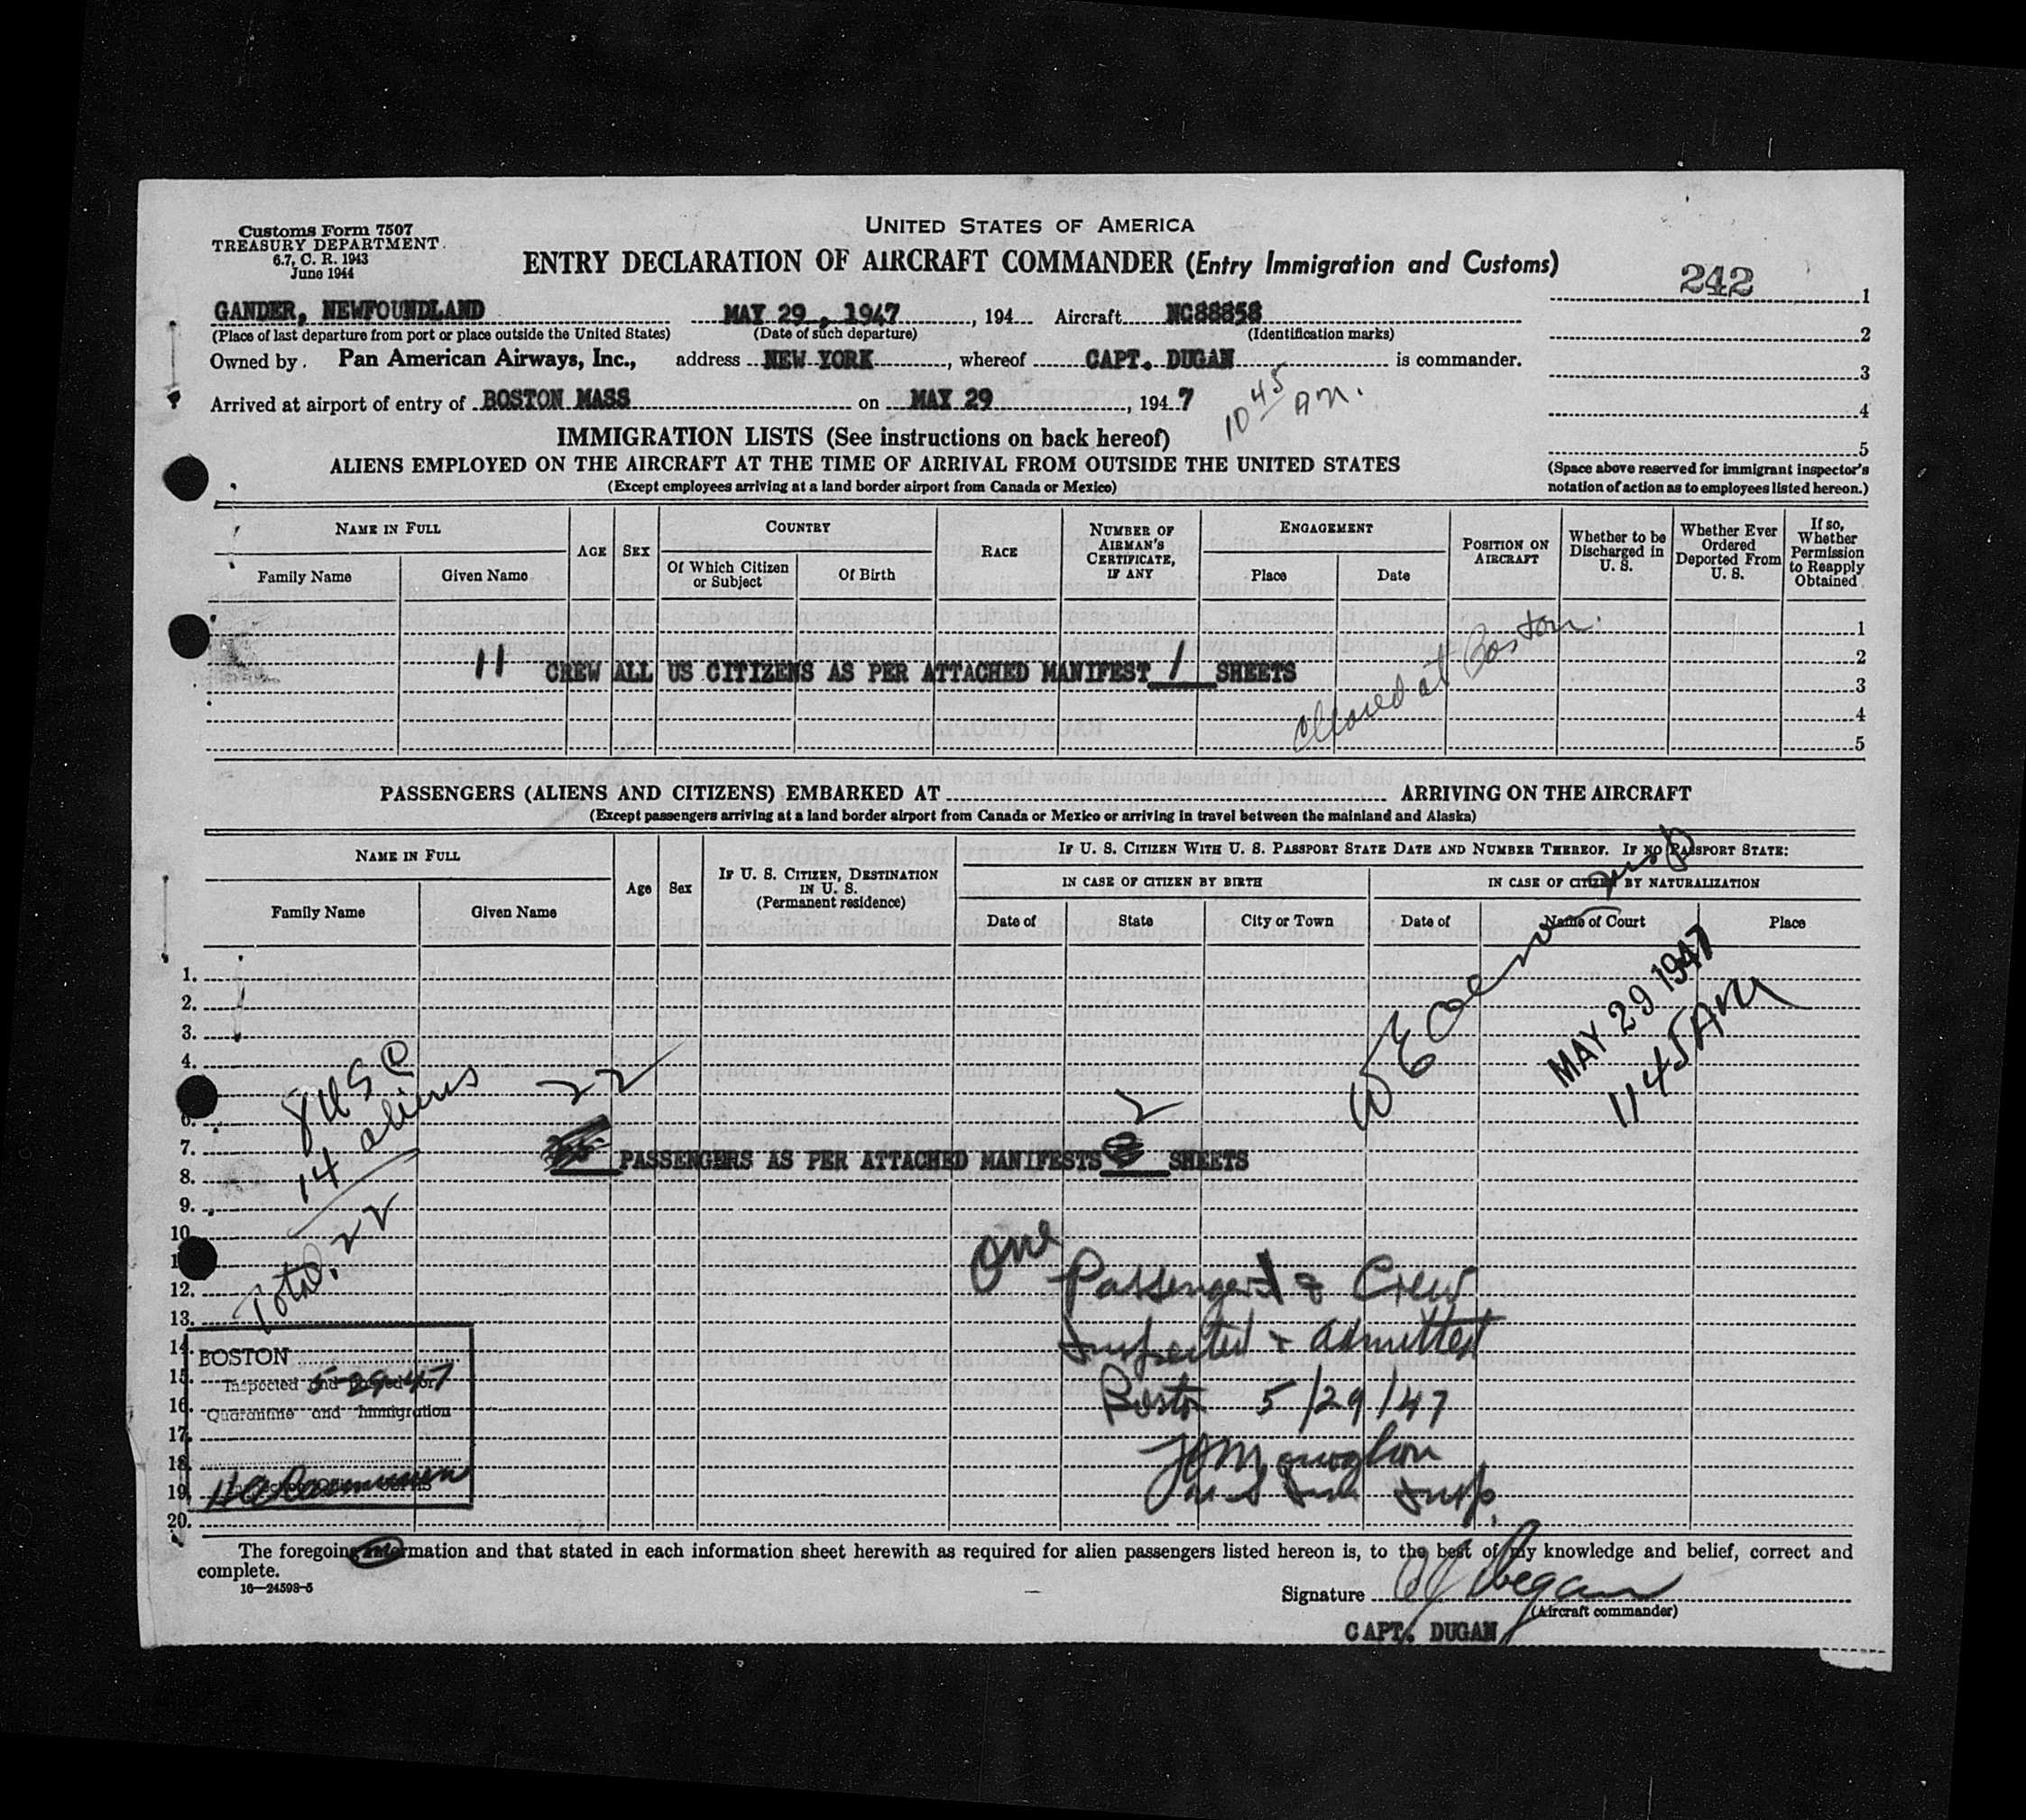 Customs Form 7507
TREASURY DEPARTMENT
6.7, C. R. 1943
June 1944
UNITED STATES OF AMERICA
ENTRY DECLARATION OF AIRCRAFT COMMANDER (Entry Immigration and Customs)
242
GANDER, NEWFOUNDLAND MAY 29, 1947, 194 Aircraft NC88858
(Place of last departure from port or place outside the United States) (Date of such departure) (Identification marks)
Owned by Pan American Airways, Inc., address NEW YORK, whereof CAPT. DUGAN is commander.
Arrived at airport of entry of BOSTON MASS on MAY 29, 1947
10 45 AM.
1
2
3
4
5
(Space above reserved for immigrant inspector's
notation of action as to employees listed hereon.)
IMMIGRATION LISTS (See instructions on back hereof)
ALIENS EMPLOYED ON THE AIRCRAFT AT THE TIME OF ARRIVAL FROM OUTSIDE THE UNITED STATES
(Except employees arriving at a land border airport from Canada or Mexico)
NAME IN FULL
Family Name Given Name
AGE
SEX
COUNTRY
Of Which Citizen or Subject
Of Birth
RACE
NUMBER OF AIRMAN'S CERTIFICATE, IF ANY
ENGAGEMENT
Place Date
POSITION ON AIRCRAFT
Whether to be Discharged in U. S.
Whether Ever Ordered Deported From U. S.
If so, Whether Permission to Reapply Obtained
1
2
3
4
5
11 CREW ALL US CITIZENS AS PER ATTACHED MANIFEST 1 SHEETS
Cleared at Boston.
PASSENGERS (ALIENS AND CITIZENS) EMBARKED AT ARRIVING ON THE AIRCRAFT
(Except passengers arriving at a land border airport from Canada or Mexico or arriving in travel between the mainland and Alaska)
NAME IN FULL
Family Name Given Name
Age
Sex
IF U. S. CITIZEN, DESTINATION IN U. S.
(Permanent residence)
IF U. S. CITIZEN WITH U. S. PASSPORT STATE DATE AND NUMBER THEREOF. IF NO PASSPORT STATE:
IN CASE OF CITIZEN BY BIRTH
Date of State City or Town
IN CASE OF CITIZEN BY NATURALIZATION
Date of Name of Court Place
1.
2.
3.
4.
6.
7.
8.
9.
10
1
12.
13.
14
15.
16.
17.
18.
19.
20.
MAY 29 1947
11 45 AM
8 USC
14 aliens
Total. 22
22
2
PASSENGERS AS PER ATTACHED MANIFESTS SHEETS
One
Passenger & Crew
Inspected & admitted
Boston 5/29/47
Insp.
BOSTON
5-29-47
Inspected and passed for
Quarantine and Immigration
The foregoing information and that stated in each information sheet herewith as required for alien passengers listed hereon is, to the best of my knowledge and belief, correct and
complete.
16—24598-5
Signature
(Aircraft commander)
CAPT. DUGAN